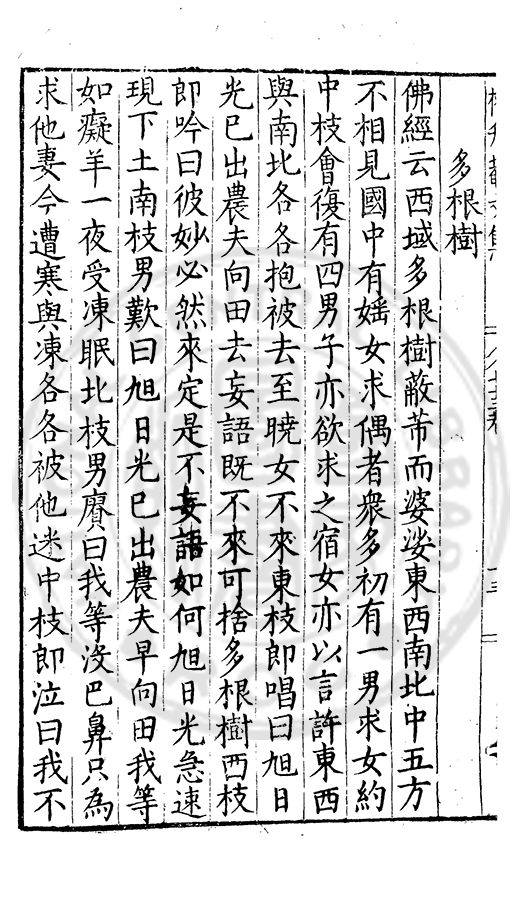 多根樹
佛經云西域多根樹蔽芾而婆娑東西南北中五方
不相見國中有婬女求偶者衆多初有一男求女約
中枝會復有四男子亦欲求之宿女亦以言許東西
與南北各各抱被去至曉女不來東枝即唱曰旭日
光已出農夫向田去妄語既不來可捨多根樹西枝
即吟曰彼妙必然來定是不妄語如何旭日光急速
現下土南枝男歎曰旭日光已出農夫早向田我等
如癡羊一夜受凍眠北枝男賡曰我等没巴鼻只為
求他妻今遭寒與凍各各被他迷中枝即泣曰我不